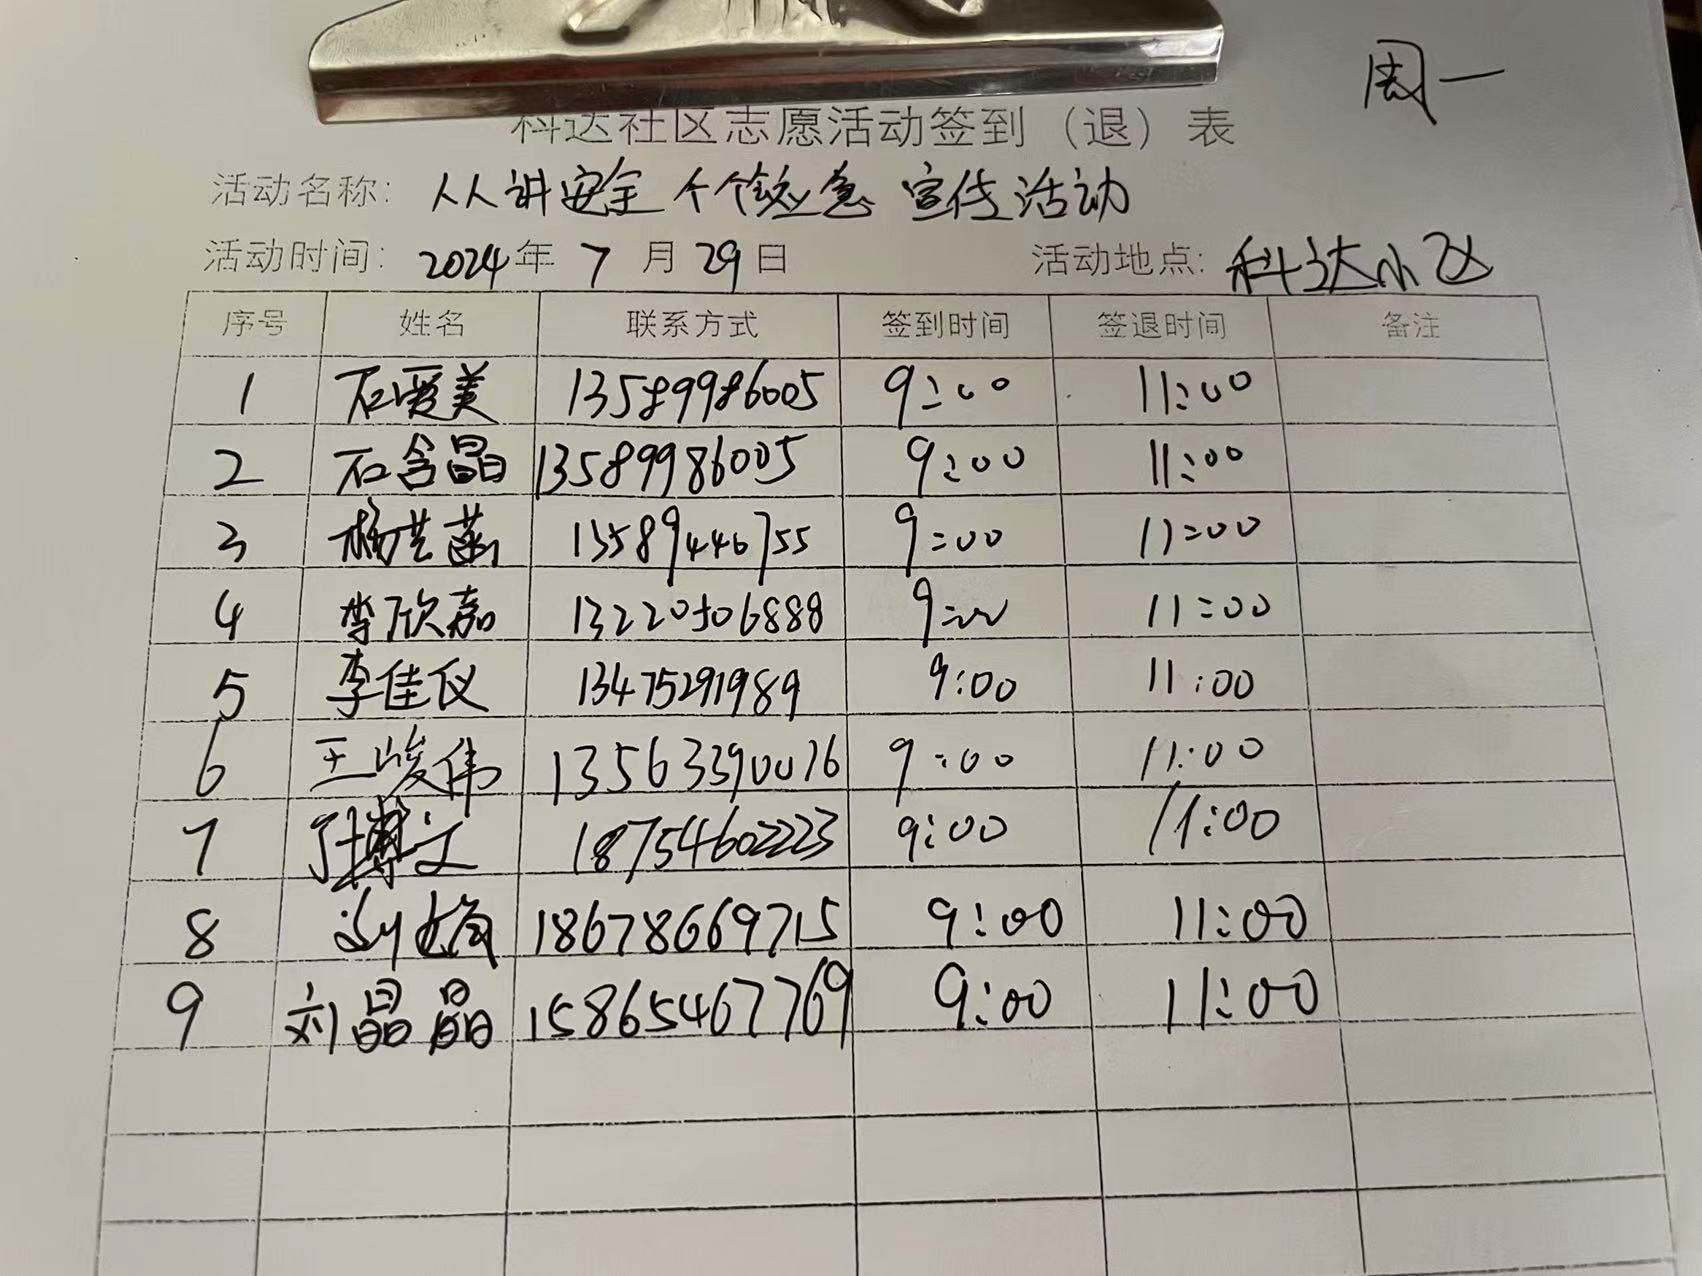 周一
科达社区志愿活动签到（退）表
活动名称：人人讲安全 个个会应急 宣传活动
活动时间：2024年 7 月 29日 活动地点：科达小区
序号 姓名 联系方式 签到时间 签退时间 备注
1 石爱美 13589986005 9:00 11:00
2 石含晶 13589986005 9:00 11:00
3 杨艺菡 13589446755 9:00 11:00
4 李欣嘉 13220506888 9:00 11:00
5 李佳仪 13475291989 9:00 11:00
6 王峻伟 13563390076 9:00 11:00
7 博文 18754602223 9:00 11:00
8 18678669715 9:00 11:00
9 刘晶晶 15865467769 9:00 11:00